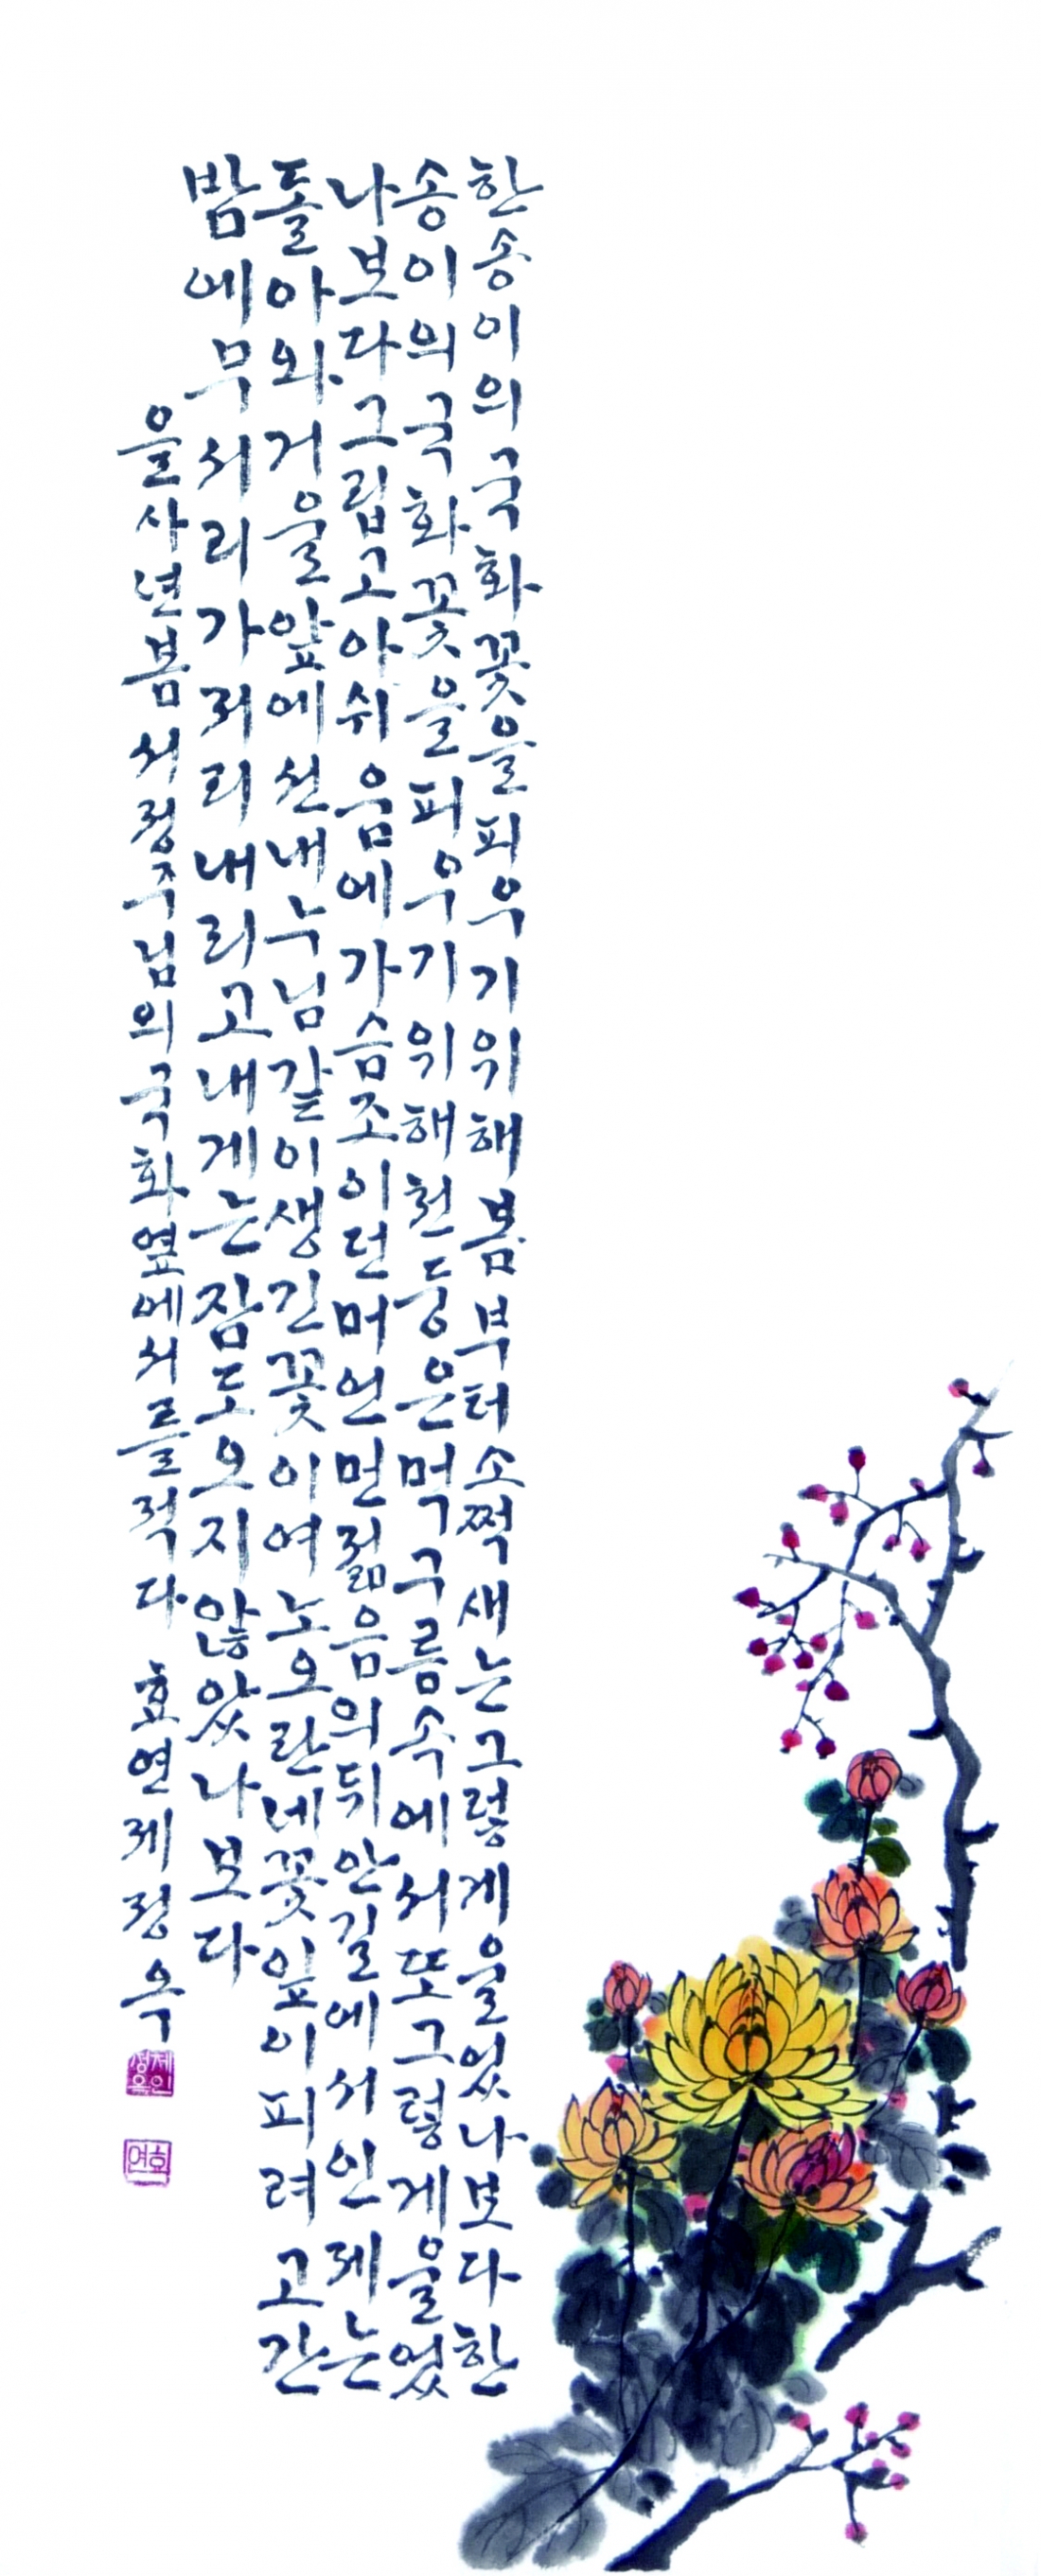 한송이의국화꽃을피우기위해봄부터소쩍새는그렇게울었나보다한
송이의국화꽃을피우기위해천둥은먹구름속에서또그렇게울었
나보다그립고아쉬움에가슴조이던머언먼젊음의뒤안길에서인제는
돌아와거울앞에선내누님같이생긴꽃이여노오란네꽃잎이피려고간
밤에무서리가저리내리고내게는잠도오지않았나보다
을사년봄서정주님의국화옆에서를적다 효연제정옥
제인정옥
효연